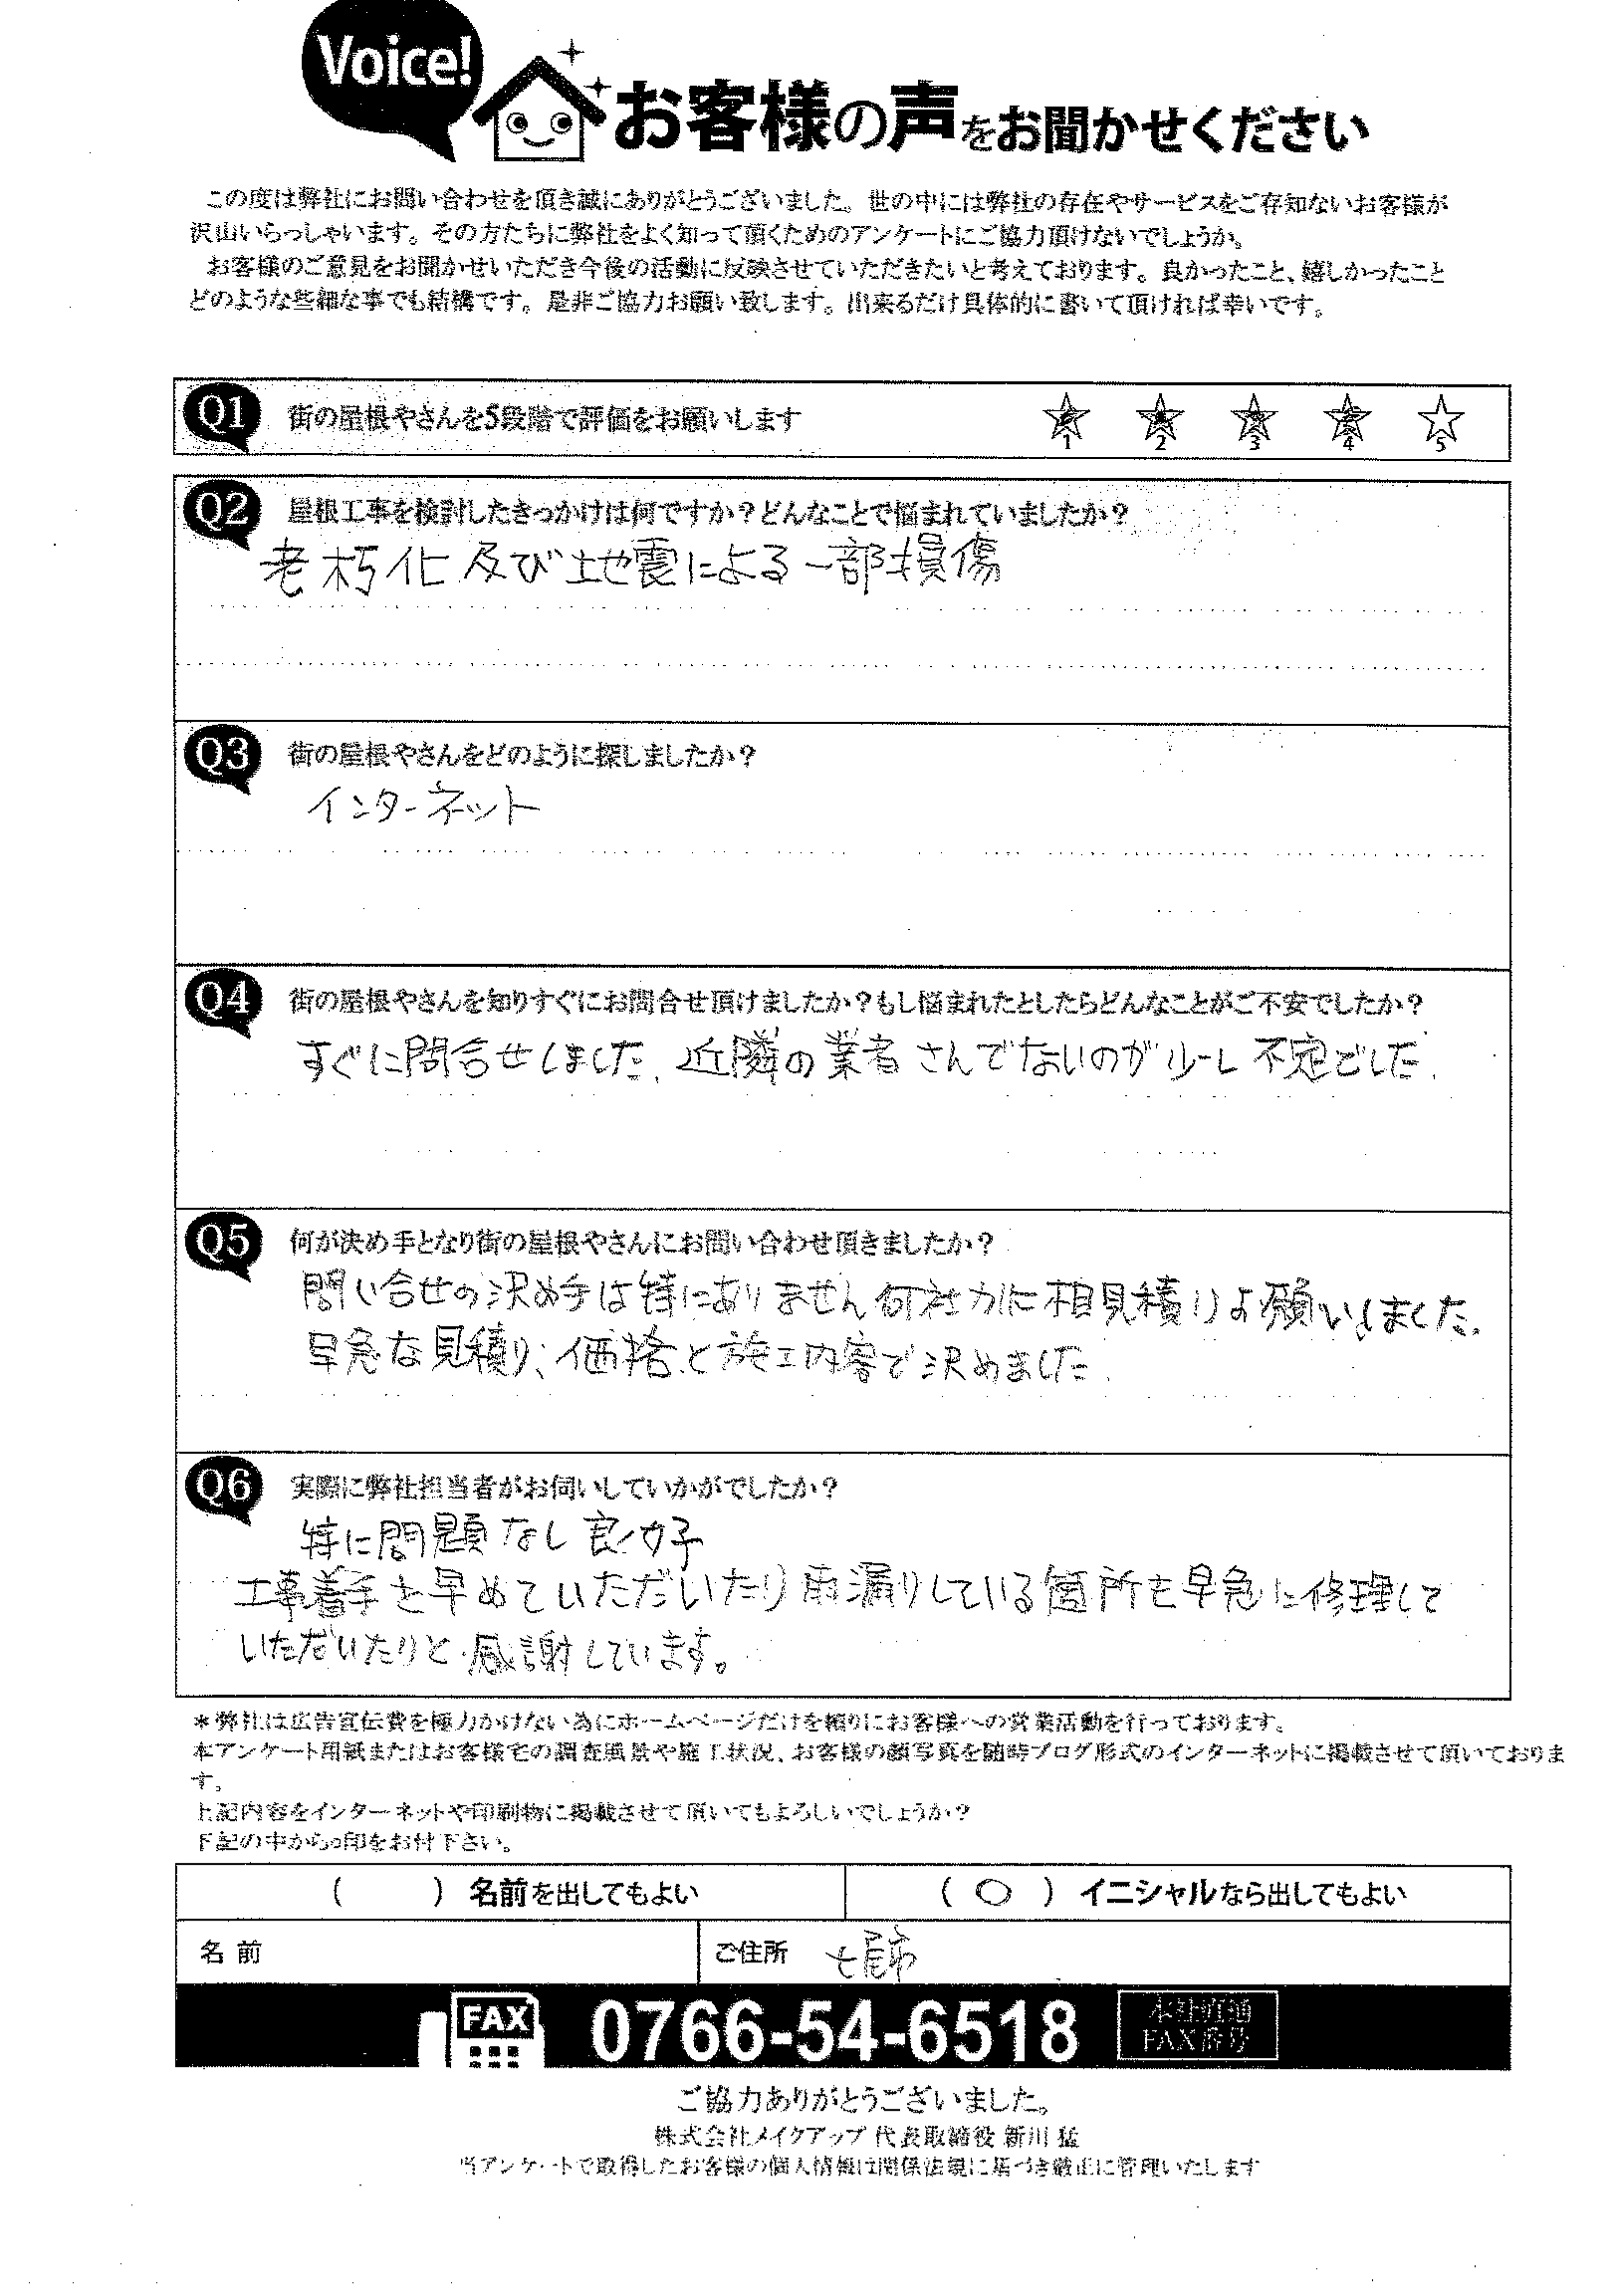 Voice!
お客様の声をお聞かせください
この度は弊社にお問い合わせを頂き誠にありがとうございました。世の中には弊社の存在やサービスをご存知ないお客様が
沢山いらっしゃいます。その方たちに弊社をよく知って頂くためのアンケートにご協力頂けないでしょうか。
お客様のご意見をお聞かせいただき今後の活動に反映させていただきたいと考えております。良かったこと、嬉しかったこと
どのような些細な事でも結構です。是非ご協力お願い致します。出来るだけ具体的に書いて頂ければ幸いです。
Q1 街の屋根やさんを5段階で評価をお願いします 1 2 3 4 5
Q2 屋根工事を検討したきっかけは何ですか？どんなことで悩まれていましたか？
老朽化及び地震による一部損傷
Q3 街の屋根やさんをどのように探しましたか？
インターネット
Q4 街の屋根やさんを知りすぐにお問合せ頂けましたか？もし悩まれたとしたらどんなことがご不安でしたか？
すぐに問合せしました、近隣の業者さんでないのが少し不定でした.
Q5 何が決め手となり街の屋根やさんにお問い合わせ頂きましたか？
問い合せの決め手は特にありません何社カに相見積りお願いしました.
早急な見積り、価格と施工内容で決めました.
Q6 実際に弊社担当者がお伺いしていかがでしたか？
特に問題なし良好
工事着手を早めていただいたり雨漏りしている箇所を早急に修理して
いただいたりと感謝しています。
＊弊社は広告宣伝費を極力かけない為にホームページだけを頼りにお客様への営業活動を行っております。
本アンケート用紙またはお客様宅の調査風景や施工状況、お客様の顔写真を随時ブログ形式のインターネットに掲載させて頂いておりま
す。
上記内容をインターネットや印刷物に掲載させて頂いてもよろしいでしょうか？
下記の中から○印をお付下さい。
（　　）名前を出してもよい （ ○ ）イニシャルなら出してもよい
名前 ご住所 七尾市
FAX 0766-54-6518 本社直通
FAX番号
ご協力ありがとうございました。
株式会社メイクアップ 代表取締役 新川 猛
当アンケートで取得したお客様の個人情報は関係法規に基づき厳正に管理いたします